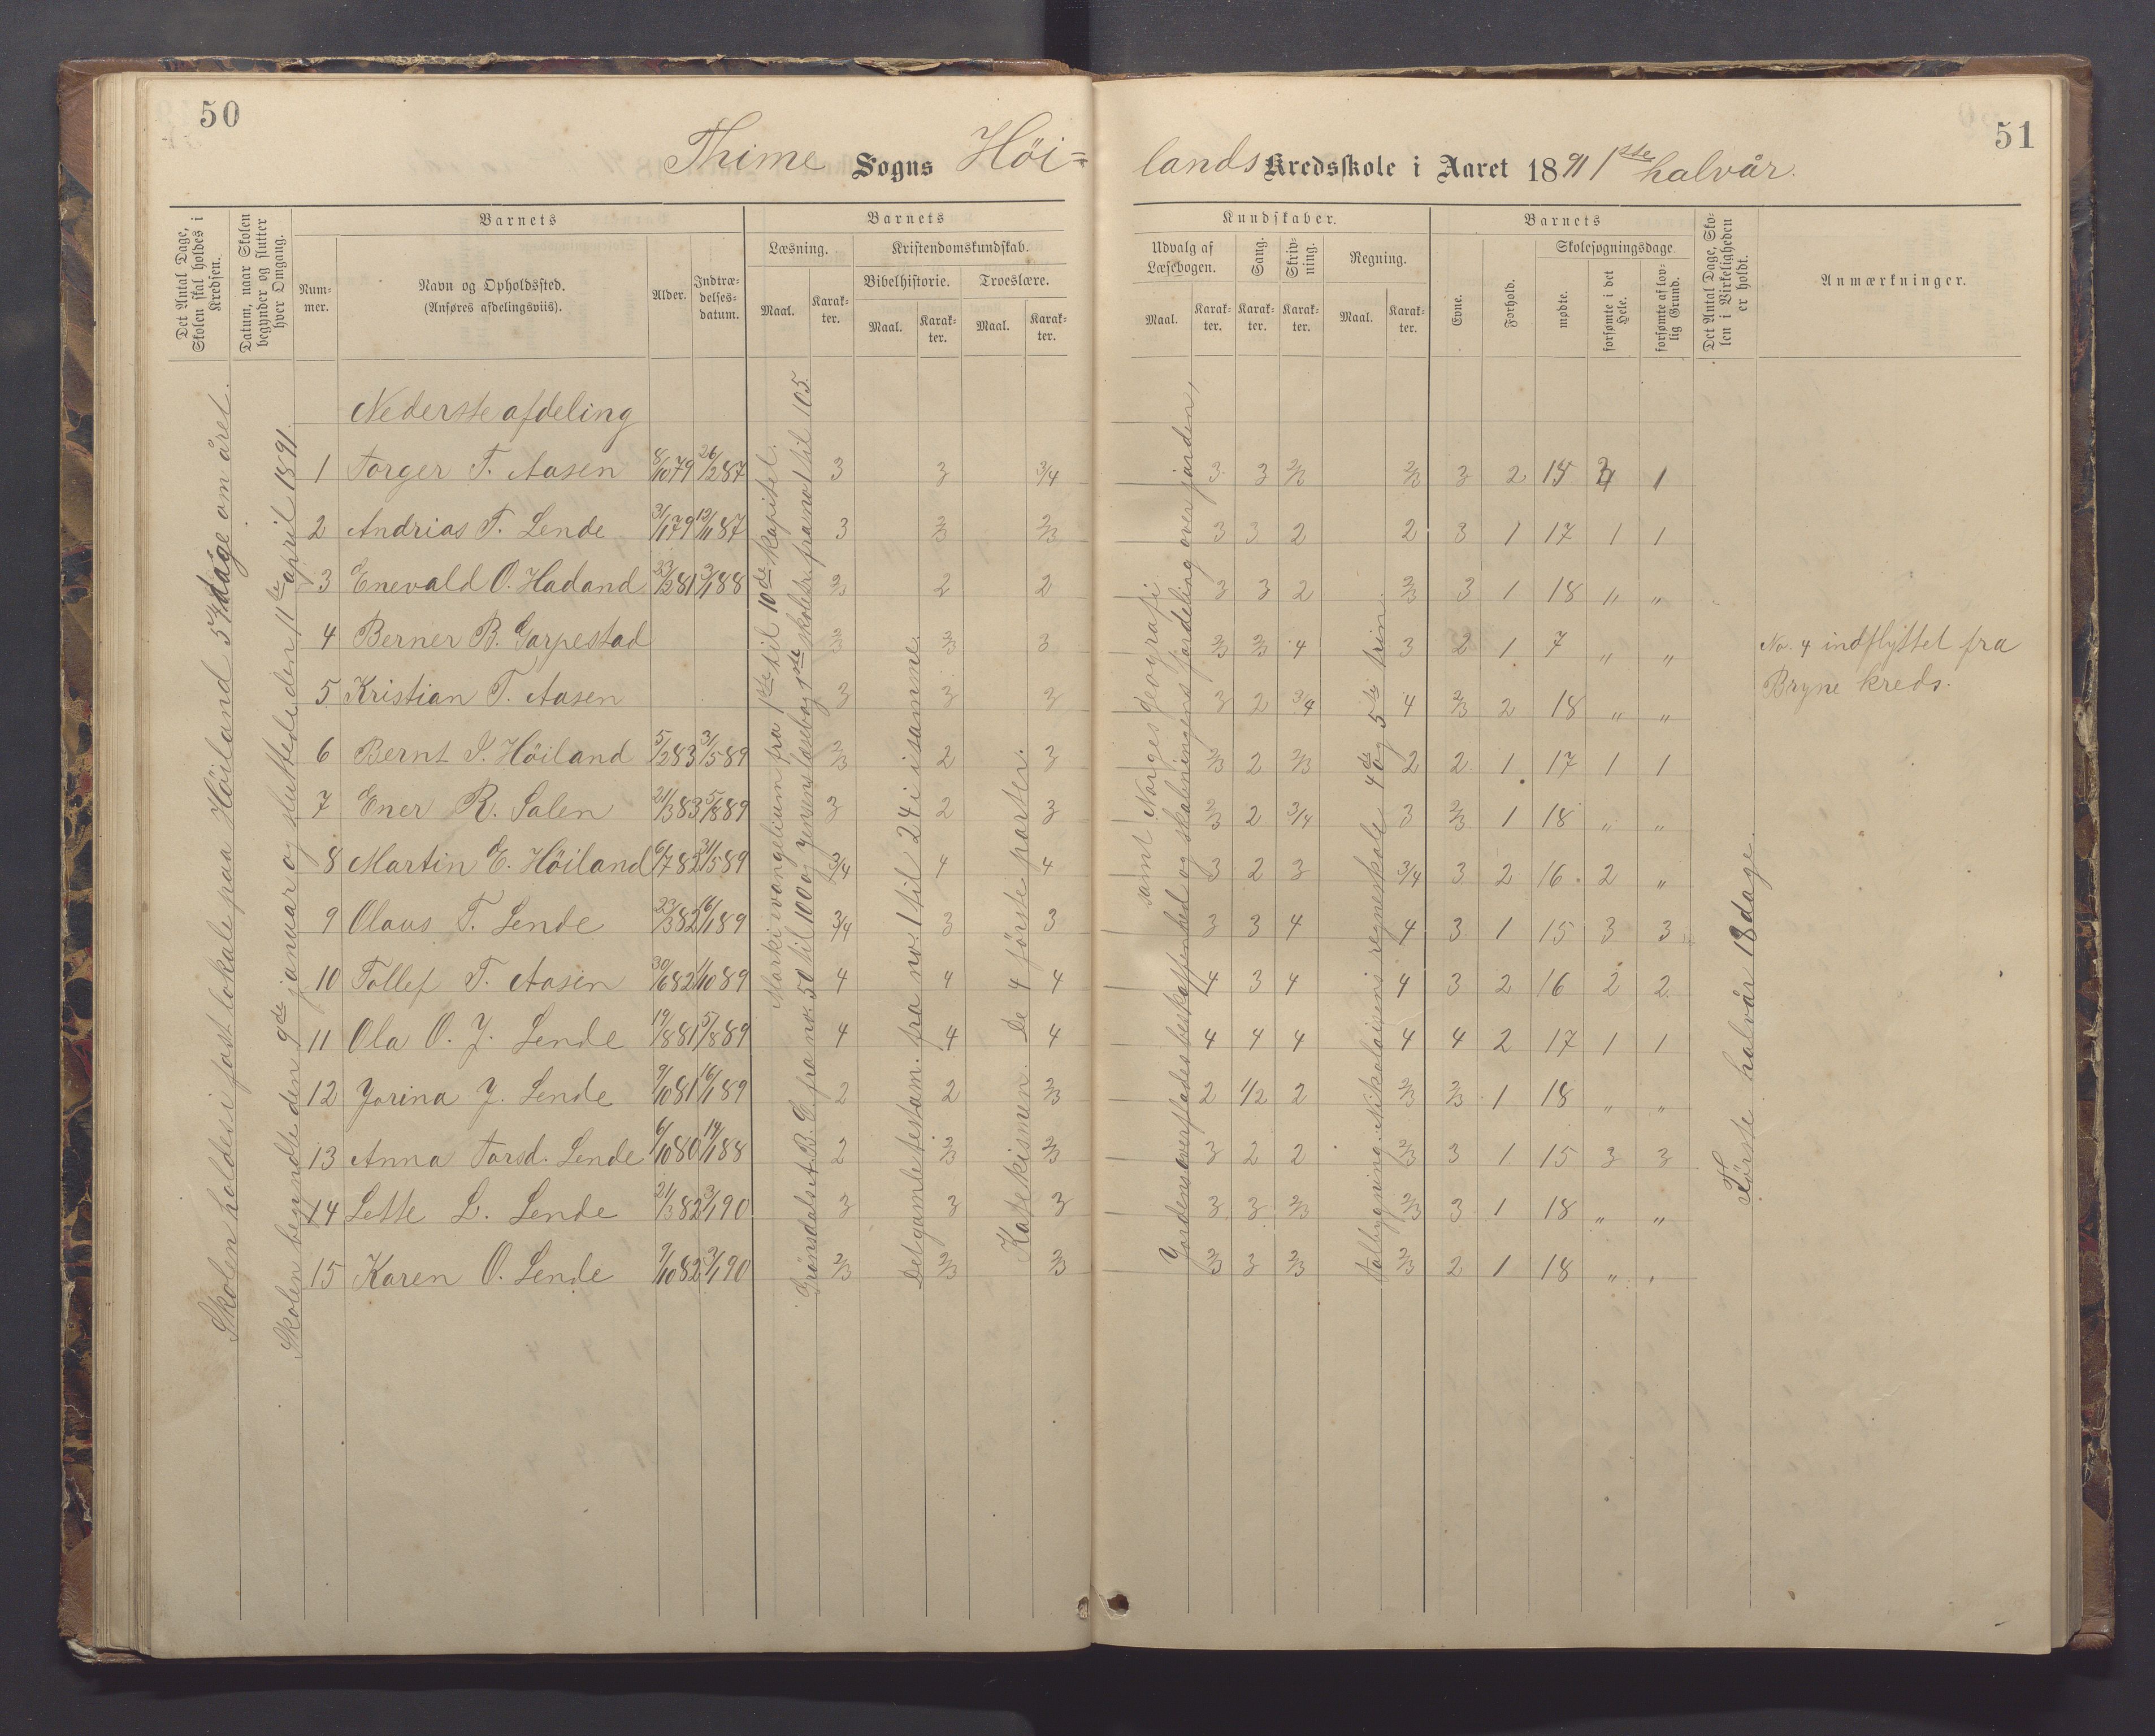 50
Thime Sogns Höi=
Det Antal Dage, Skolen skal holdes i Kredsen.
Datum, naar Skolen begynder og slutter hver Omgang.
Barnets
Barnets
Nummer.
Navn og Opholdssted.
(Anføres afdelingsviis.)
Alder.
Indtrædelsesdatum.
Læsning.
Kristendomskundskab.
Bibelhistorie.
Troeslære.
Maal. Karakter. Maal. Karakter. Maal. Karakter.
Skolen holdes i fast lokale paa Höiland 57 dage om året.
Skolen begyndte den 9de januar og sluttede den 11te april 1891.
Marki evangelium fra 1ste til 10de kapitel.
Grønsdals A.B.C. fra no: 50 til 100 og Jensens læsebog 1ste skoletr. fra no 1 til 105.
Det gamle testam. fra no: 1 til 24 i samme.
Katekismen. De 4 første parter.
Nederste afdeling
1 Torger T. Aasen 8/10 79 26/2 87 3 3 3/4
2 Andrias T. Lende 31/1 79 12/11 87 3 2/3 2/3
3 Enevald O. Hadand 23/2 81 3/1 88 2/3 2 2
4 Berner B. Garpestad 2/3 2/3 3
5 Kristian T. Aasen 3 3 3
6 Bernt S. Höiland 5/2 83 31/5 89 2/3 2 3
7 Ener R. Salen 21/3 83 5/8 89 3 2 3
8 Martin E. Höiland 6/7 82 31/5 89 3/4 4 4
9 Olaus T. Lende 22/3 82 16/1 89 3/4 3 3
10 Tollef T. Aasen 30/6 82 1/10 89 4 4 4
11 Ola O. J. Lende 19/8 81 5/8 89 4 4 4
12 Jorina J. Lende 9/10 81 16/1 89 2 2 2/3
13 Anna Torsd. Lende 6/10 80 19/1 88 2 2/3 2/3
14 Lette L. Lende 21/3 82 3/1 90 3 3 3
15 Karen O. Lende 9/10 82 3/1 90 2/3 2/3 2/3
51
lands Kredsskole i Aaret 1891 1ste halvår.
Kundskaber.
Barnets
Udvalg af Læsebogen.
Sang.
Skrivning.
Regning.
Evne.
Forhold.
Skolesøgningsdage
mødte.
forsømte i det Hele.
forsømte af lovlig Grund.
Det Antal Dage, Skolen i Virkeligheden er holdt.
Anmærkninger.
Maal. Karakter. Karakter. Karakter. Maal. Karakter.
samt Norges geografi.
Jordens overflades beskaffenhed og skabningens fordeling over jorden,
Talbygning. Nikolaisens regneskole 4de og 5te trin.
Første halvår 18 dage.
3 3 2/3 2/3 3 2 15 1
3 3 2 2 3 1 17 1 1
3 3 2 2/3 3 1 18 " "
2/3 2/3 4 3 2 1 7 " "
No. 4 indflyttet fra
Bryne kreds.
3 2 3/4 4 2/3 2 18 " "
2/3 2 2/3 2 2 1 17 1 1
2/3 2 3/4 3 2/3 1 18 " "
3 2 3 3/4 3 2 16 2 "
3 3 4 4 3 1 15 3 3
4 3 4 4 3 2 16 2 2
4 4 4 4 4 2 17 1 1
2 1/2 2 2/3 2/3 1 18 " "
3 2 2 2/3 3 1 15 3 3
3 3 2/3 2/3 3 1 18 " "
2/3 3 2/3 2/3 2 1 18 " "